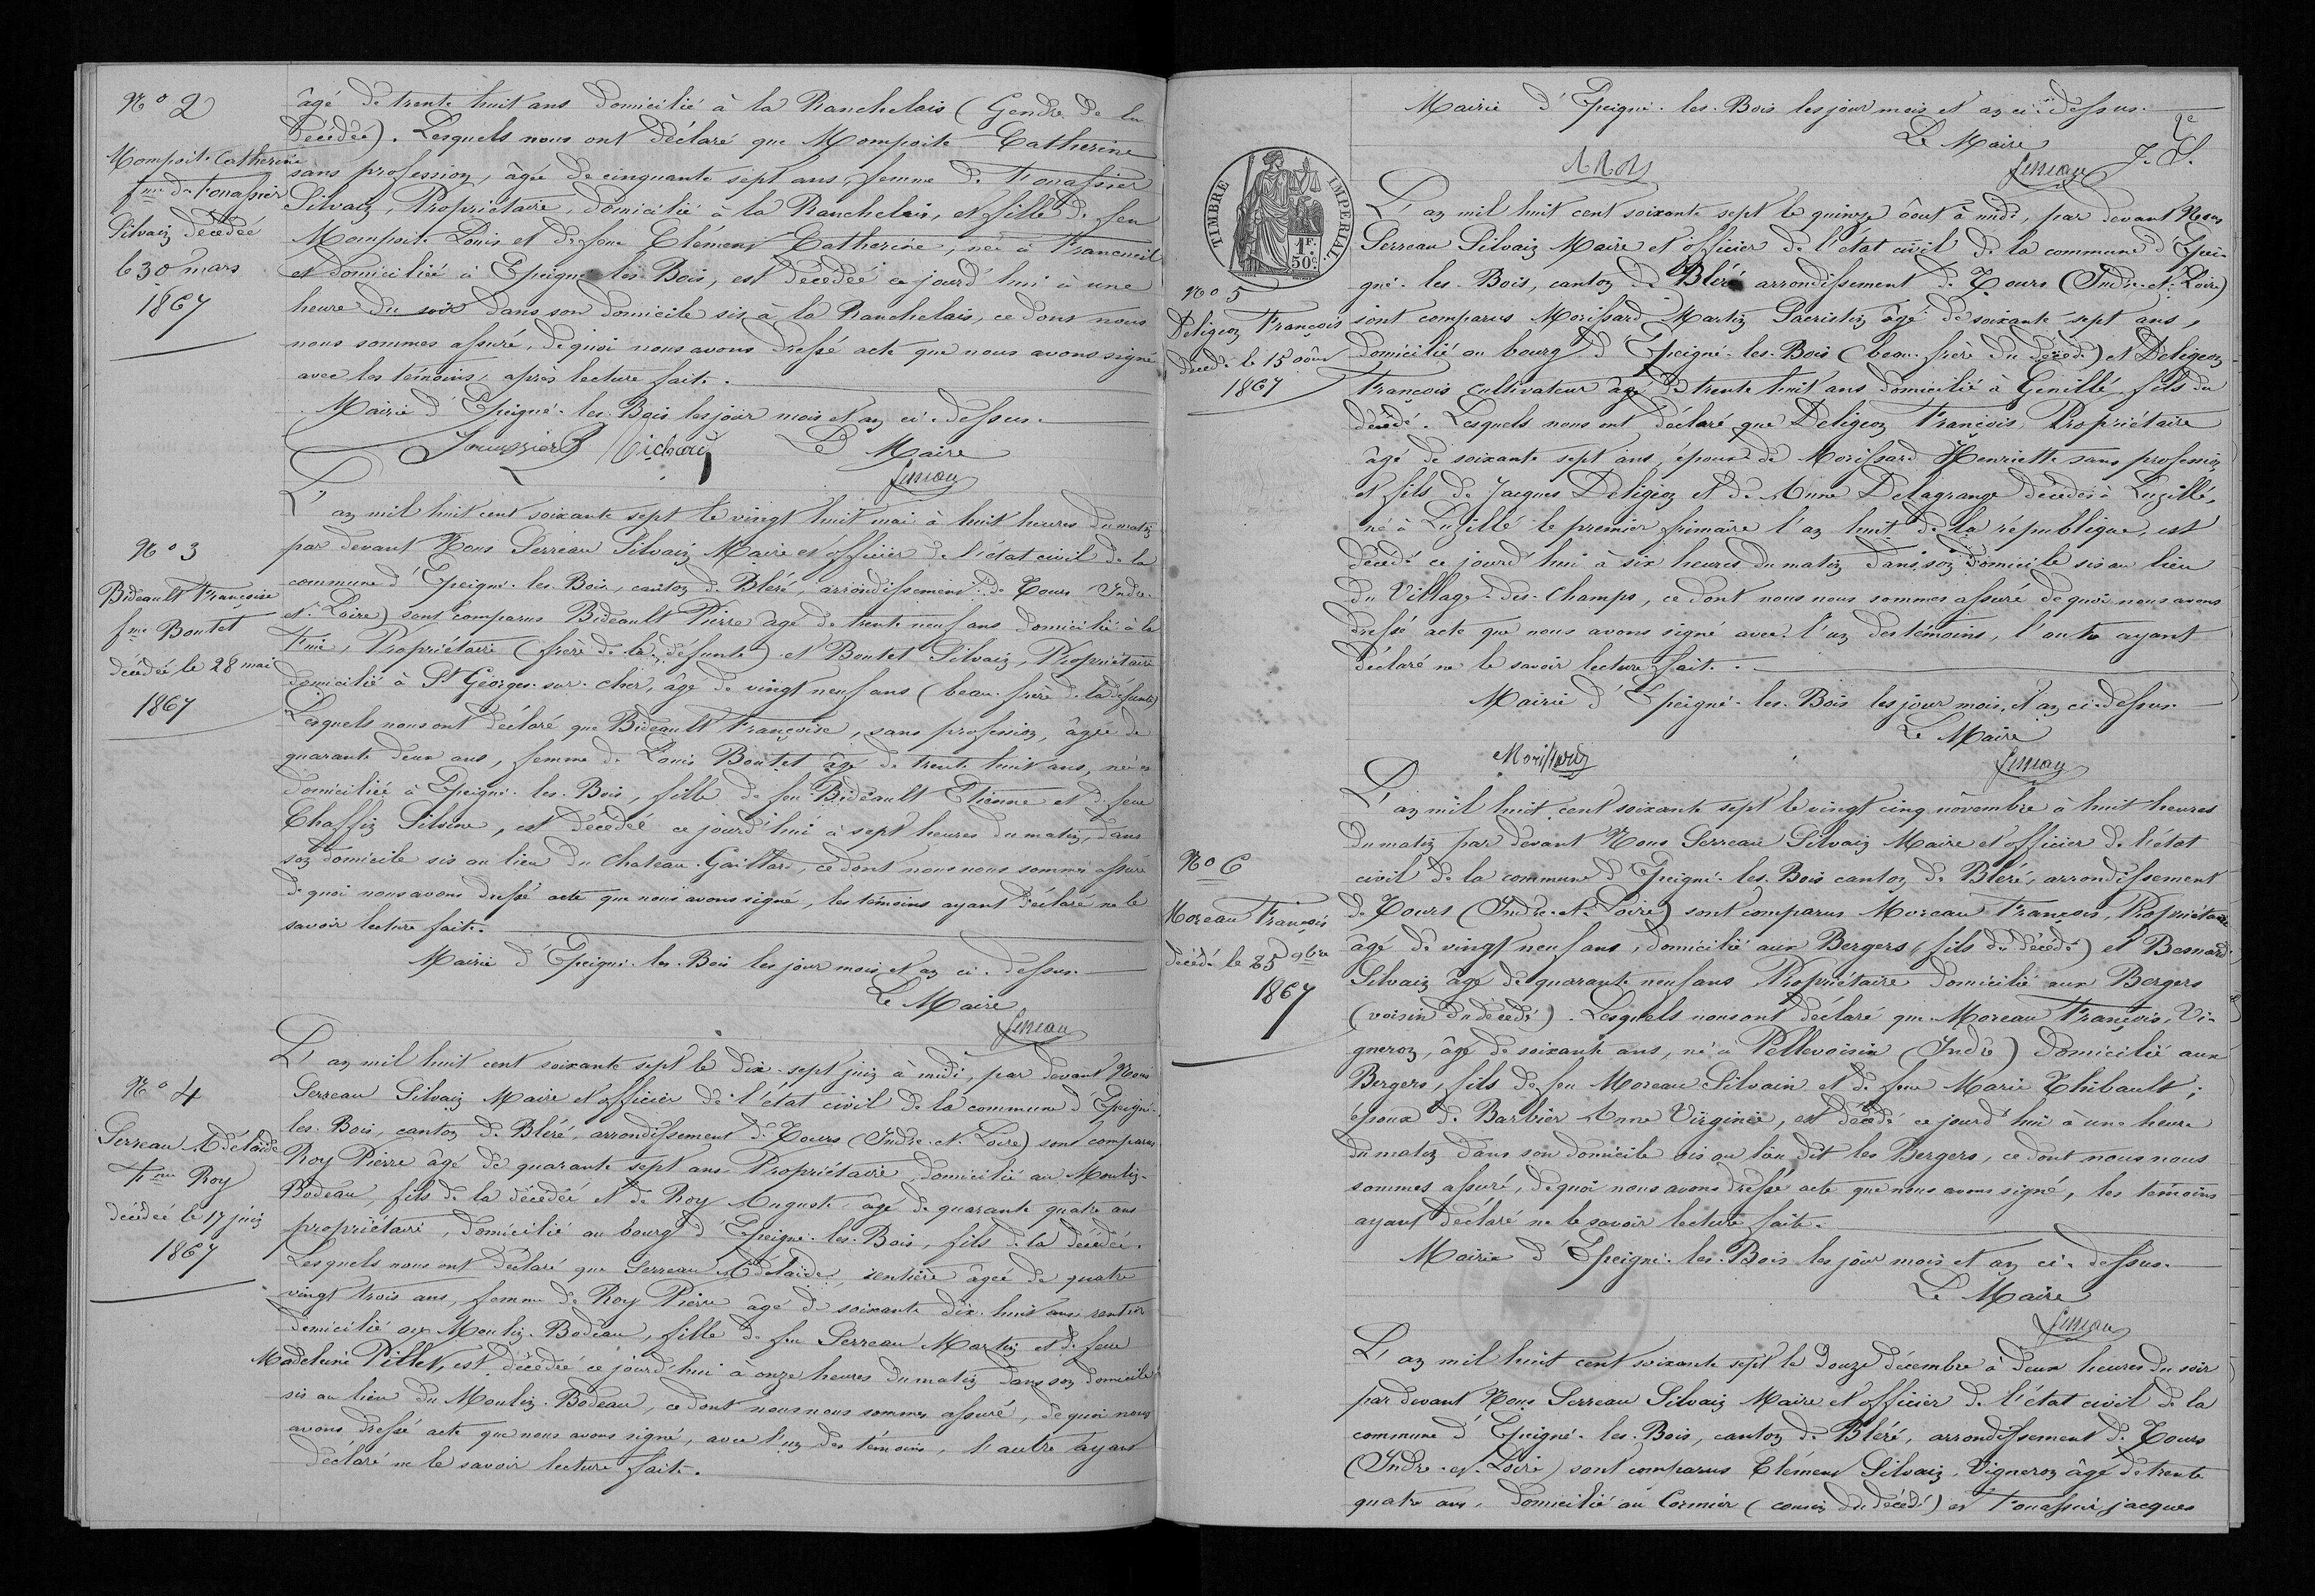 No 2
Mompoite Catherine
fme de Fouassier
Silvain décédée
le 30 mars
1867
âgé de trente huit ans domicilié à la Ranchelais (Gendre de la
décédée). Lesquels nous ont déclaré que Mompoite Catherine
sans profession, âgée de cinquante sept ans, femme de Fouassier
Silvain, Propriétaire, domicilié à la Ranchelais, et fille de feu
Mompoite Louis et de feue Clément Catherine, née à Francueil
et domiciliée à Epeigné les Bois, est décédée ce jourd'hui à une
heure du soir dans son domicile sis à la Ranchelais, ce dont nous
nous sommes assuré, de quoi nous avons dressé acte que nous avons signé
avec les témoins, après lecture faite.
Mairie d'Epeigné-les-Bois les jour mois et an ci-dessus.
Fouassier Richard Le Maire
Serreau
No 3
Bideault Françoise
fme Boutet
décédée le 28 mai
1867
L'an mil huit cent soixante sept le vingt huit mai à huit heures du matin
par devant Nous Serreau Silvain Maire et officier de l'état civil de la
commune d'Epeigné-les-Bois, canton de Bléré, arrondissement de Tours Indre-
et-Loire) sont comparus Bideault Pierre âgé de trente neuf ans domicilié à la
Propriétaire (frère de la défunte) et Boutet Silvain, Propriétaire
domicilié à St Georges-sur-Cher, âgé de vingt neuf ans (beau-frère de la défunte)
Lesquels nous ont déclaré que Bideault Françoise, sans profession, âgée de
quarante deux ans, femme de Louis Boutet âgé de trente huit ans, née et
domiciliée à Epeigné-les-Bois, fille de feu Bideault Etienne et de feue
Chaffin Silvine, est décédée ce jourd'hui à sept heures du matin, dans
son domicile sis au lieu du Chateau-Gaillard, ce dont nous nous sommes assuré
de quoi nous avons dressé acte que nous avons signé, les témoins ayant déclaré ne le
savoir lecture faite.
Mairie d'Epeigné-les-Bois les jour mois et an ci-dessus.
Le Maire
Serreau
No 4
Serreau Adélaïde
Fme Roy
décédée le 17 juin
1867
L'an mil huit cent soixante sept le dix-sept juin à midi, par devant Nous
Serreau Silvain Maire et officier de l'état civil de la commune d'Epeigné-
les-Bois, canton de Bléré, arrondissement de Tours (Indre-et-Loire) sont comparus
Roy Pierre âgé de quarante sept ans Propriétaire, domicilié au Moulin-
Bodeau, fils de la décédée et de Roy Auguste âgé de quarante quatre ans
propriétaire, domicilié au bourg d'Epeigné-les-Bois, fils de la décédée.
Lesquels nous ont déclaré que Serreau Adélaïde, rentière âgée de quatre
vingt trois ans, femme de Roy Pierre âgé de soixante dix-huit ans rentier
domicilié au Moulin-Bodeau, fille de feu Serreau Martin et de feue
Madeleine Pillet, est décédée ce jourd'hui à onze heures du matin dans son domicile
sis au lieu du Moulin-Bodeau, ce dont nous nous sommes assuré, de quoi nous
avons dressé acte que nous avons signé, avec l'un des témoins, l'autre ayant
déclaré ne le savoir lecture faite.
Mairie d'Epeigné-les-Bois les jour mois et an ci-dessus.
Le Maire
Serreau
TIMBRE IMPERIAL
1F.
50c.
No 5
Deligeon François
décédé le 15 août
1867
L'an mil huit cent soixante sept le quinze août à midi, par devant Nous
Serreau Silvain Maire et officier de l'état civil de la commune d'Epei-
gné-les-Bois, canton de Bléré arrondissement de Tours (Indre-et-Loire)
sont comparus Morissard Martin Sacristin âgé de soixante sept ans,
domicilié au bourg d'Epeigné-les-Bois (beau-frère du décédé) et Deligeon
François cultivateur âgé de trente huit ans domicilié à Genillé fils du
décédé. Lesquels nous ont déclaré que Deligeon François Propriétaire
âgé de soixante sept ans, époux de Morissard Henriette sans profession
et fils de Jacques Deligeon et de Anne Delagrange décédés à Luzillé,
né à Luzillé le premier frimaire l'an huit de la république, est
décédé ce jourd'hui à six heures du matin dans son domicile sis au lieu
du Village-des-Champs, ce dont nous nous sommes assuré de quoi nous avons
dressé acte que nous avons signé avec l'un des témoins, l'autre ayant
déclaré ne le savoir lecture faite.
Mairie d'Epeigné-les-Bois les jour mois et an ci-dessus.
Le Maire
Morissard Serreau
No 6
Moreau François
décédé le 25 9bre
1867
L'an mil huit cent soixante sept le vingt cinq novembre à huit heures
du matin par devant Nous Serreau Silvain Maire et officier de l'état
civil de la commune d'Epeigné-les-Bois canton de Bléré, arrondissement
de Tours (Indre-et-Loire) sont comparus Moreau François, Propriétaire
âgé de vingt neuf ans, domicilié aux Bergers (fils du décédé) et Besnard
Silvain âgé de quarante neuf ans Propriétaire domicilié aux Bergers
(voisin du décédé). Lesquels nous ont déclaré que Moreau François, Vi-
gneron, âgé de soixante ans, né à Pellevoisin (Indre) domicilié aux
Bergers, fils de feu Moreau Silvain et de feue Marie Thibault;
époux de Barbier Anne Virginie, est décédé ce jourd'hui à une heure
du matin dans son domicile sis au lieu dit les Bergers, ce dont nous nous
sommes assuré, de quoi nous avons dressé acte que nous avons signé, les témoins
ayant déclaré ne le savoir lecture faite.
Mairie d'Epeigné-les-Bois les jour mois et an ci-dessus.
Le Maire
Serreau
L'an mil huit cent soixante sept le douze décembre à deux heures du soir
par devant Nous Serreau Silvain Maire et officier de l'état civil de la
commune d'Epeigné-les-Bois, canton de Bléré, arrondissement de Tours
(Indre-et-Loire) sont comparus Clément Silvain, Vigneron âgé de trente
quatre ans, domicilié au Cormier (cousin du décédé) et Fouassier jacques